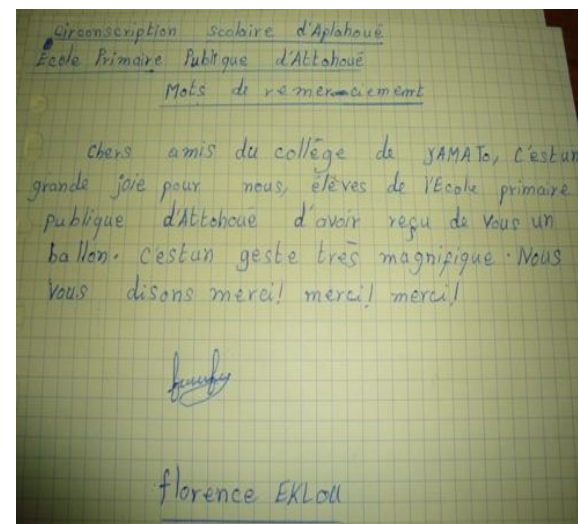 Circonscription scolaire d'Aplahoué
Ecole Primaire Publique d'Attohoué
Mots de remerciement
Chers amis du collège de YAMATo, C'est un
grande joie pour nous, élèves de l'Ecole primaire
publique d'Attohoué d'avoir reçu de Vous un
ballon. C'est un geste très magnifique. Nous
Vous disons merci! merci! merci!
florence EKLOU